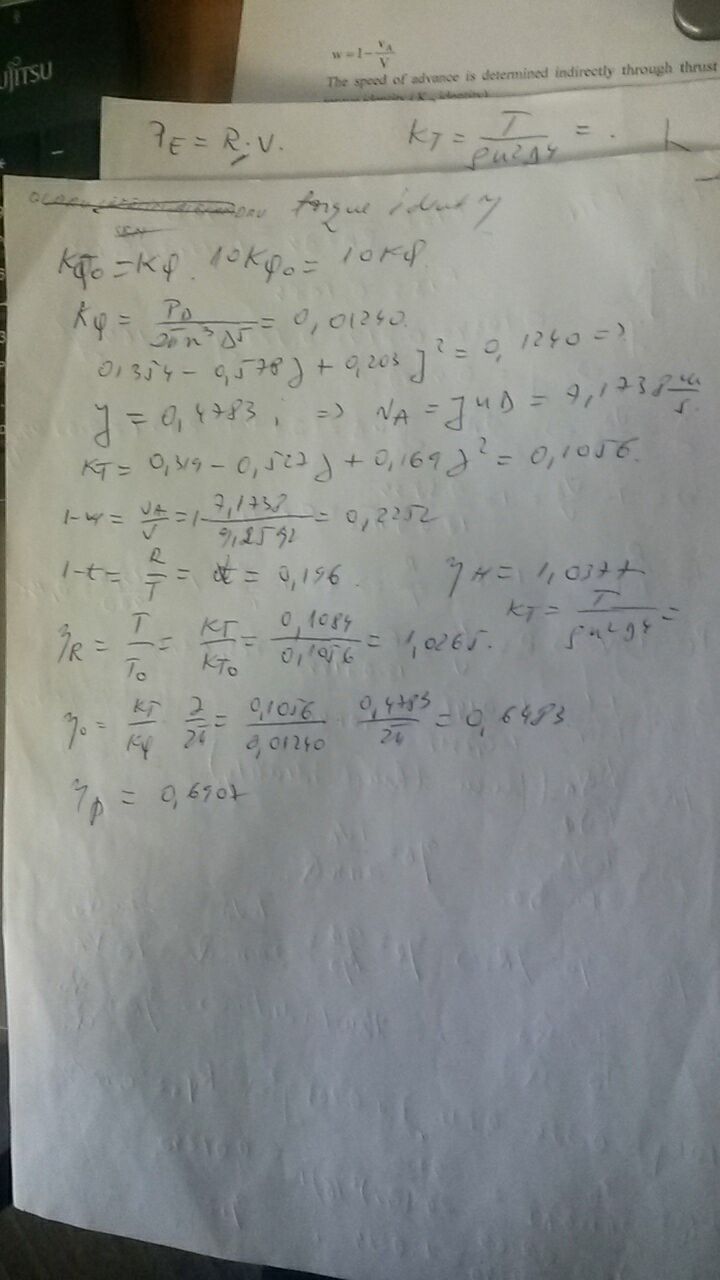 UJITSU
w = 1 - v_A/V
The speed of advance is determined indirectly through thrust
P_E = R · V.
K_T = T/(ρn²D⁴) = .
torque
K_Qo = K_Q. 10K_Qo = 10K_Q
K_Q = P_D/(2πn³D⁵) = 0,01240.
0,354 - 0,578J + 0,203J² = 0,1240 =>
J = 0,4783; => v_A = JnD = 7,1738 m/s.
K_T = 0,319 - 0,527J + 0,169J² = 0,1056.
1-w = v_A/V = 1- 7,1738/9,2592 = 0,2252
1-t = R/T = t = 0,196.
η_H = 1,0377
K_T = T/(ρn²D⁴) =
η_R = T/T_o = K_T/K_To = 0,1084/0,1056 = 1,0265.
η_o = K_T/K_Q J/2π = 0,1056/0,01240 0,4783/2π = 0,6483
η_D = 0,6907